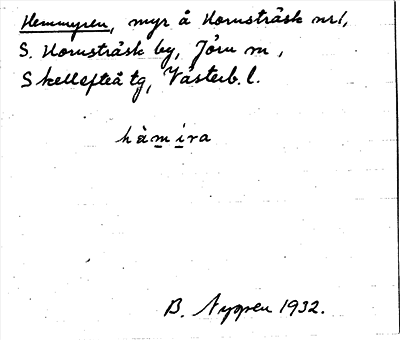 Hemmyren, myr å Hornsträsk nr 1,
S. Hornsträsk by, Jörn sn,
Skellefteå tg, Västerb. l.
hàmíra
B. Nygren 1932.